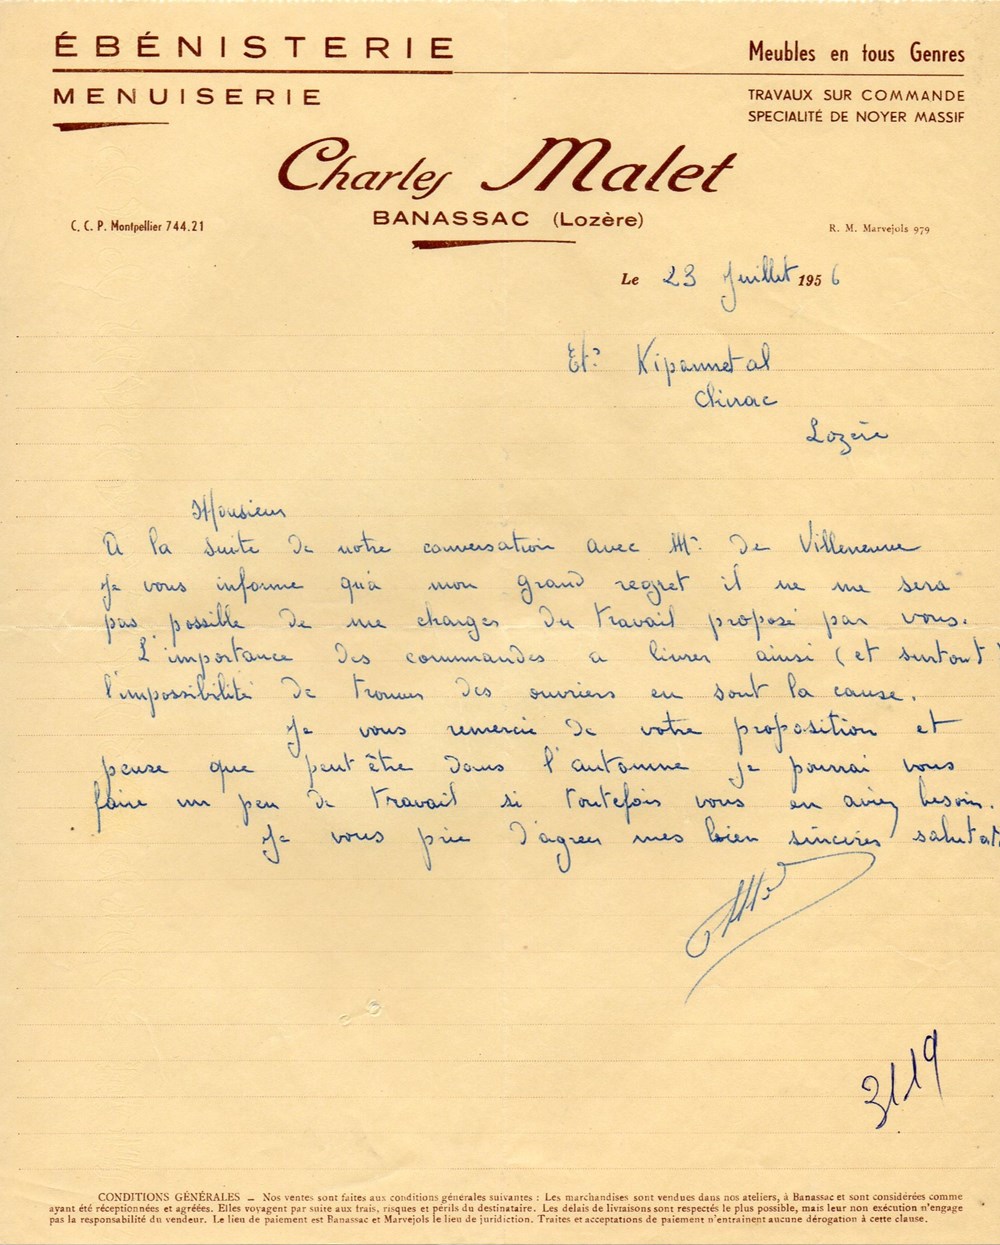 ÉBÉNISTERIE
MENUISERIE
Meubles en tous Genres
TRAVAUX SUR COMMANDE
SPECIALITÉ DE NOYER MASSIF
Charles Malet
BANASSAC (Lozère)
C. C. P. Montpellier 744.21
R. M. Marvejols 979
Le 23 Juillet 1956
Ets Kipanmetal
Chirac
Lozère
Monsieur
A la suite de notre conversation avec Mr de Villeneuve
Je vous informe qu'a mon grand regret il ne me sera
pas possible de me charger du travail proposé par vous.
L'importance des commandes a livrer ainsi (et surtout)
l'impossibilité de trouver des ouvriers en sont la cause.
Je vous remercie de votre proposition et
pense que peut être dans l'automne je pourrai vous
faire un peu de travail si toutefois vous en aviez besoin.
Je vous prie d'agreer mes bien sincères salutat
3119
CONDITIONS GÉNÉRALES — Nos ventes sont faites aux conditions générales suivantes : Les marchandises sont vendues dans nos ateliers, à Banassac et sont considérées comme
ayant été réceptionnées et agréées. Elles voyagent par suite aux frais, risques et périls du destinataire. Les délais de livraisons sont respectés le plus possible, mais leur non exécution n'engage
pas la responsabilité du vendeur. Le lieu de paiement est Banassac et Marvejols le lieu de juridiction. Traites et acceptations de paiement n'entrainent aucune dérogation à cette clause.